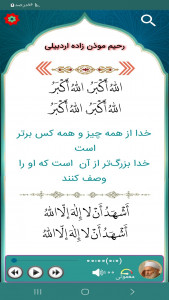 رحیم موذن زاده اردبیلی
اَللهُ اَکْبَرُ اَللهُ اَکْبَرُ
اَللهُ اَکْبَرُ اَللهُ اَکْبَرُ
خدا از همه چیز و همه کس برتر
است
خدا بزرگ‌تر از آن است که او را
وصف کنند
اَشْهَدُ اَنْ لا اِلهَ اِلَّا اللهُ
اَشْهَدُ اَنْ لا اِلهَ اِلَّا اللهُ
00:00
معمولی